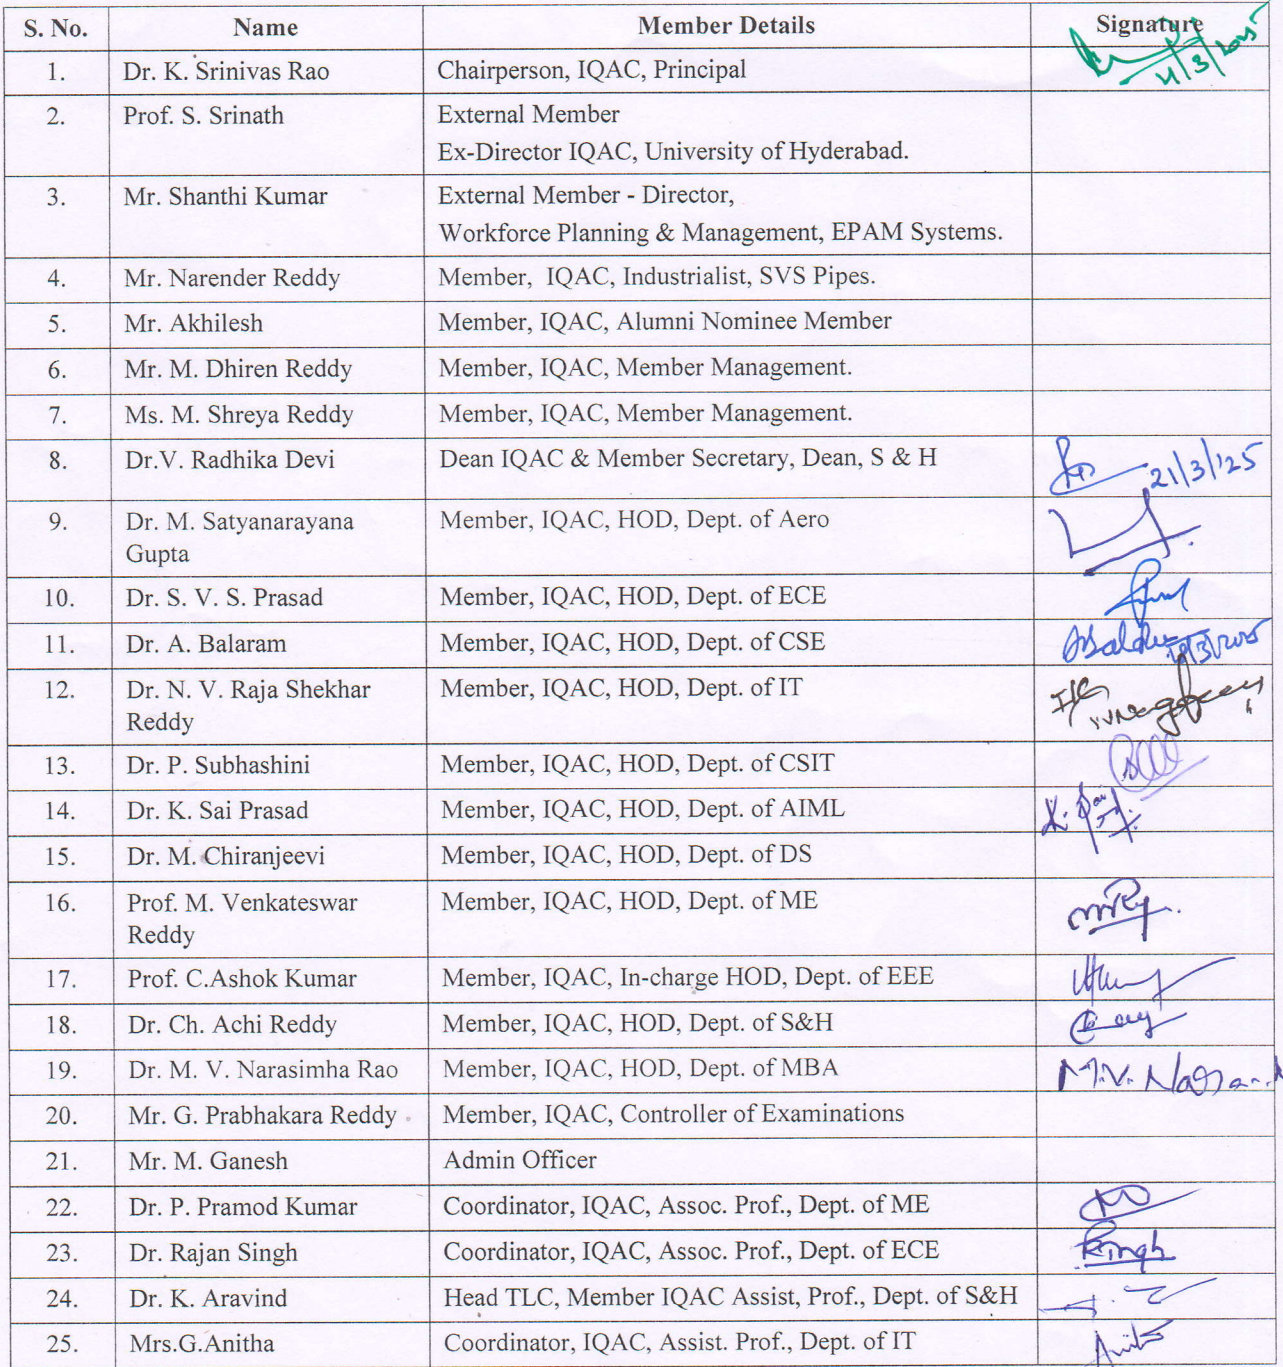 S. No. Name Member Details Signature
1. Dr. K. Srinivas Rao Chairperson, IQAC, Principal
2. Prof. S. Srinath External Member
Ex-Director IQAC, University of Hyderabad.
3. Mr. Shanthi Kumar External Member - Director,
Workforce Planning & Management, EPAM Systems.
4. Mr. Narender Reddy Member, IQAC, Industrialist, SVS Pipes.
5. Mr. Akhilesh Member, IQAC, Alumni Nominee Member
6. Mr. M. Dhiren Reddy Member, IQAC, Member Management.
7. Ms. M. Shreya Reddy Member, IQAC, Member Management.
8. Dr.V. Radhika Devi Dean IQAC & Member Secretary, Dean, S & H 21/3/'25
9. Dr. M. Satyanarayana Member, IQAC, HOD, Dept. of Aero
Gupta
10. Dr. S. V. S. Prasad Member, IQAC, HOD, Dept. of ECE
11. Dr. A. Balaram Member, IQAC, HOD, Dept. of CSE
12. Dr. N. V. Raja Shekhar Member, IQAC, HOD, Dept. of IT
Reddy
13. Dr. P. Subhashini Member, IQAC, HOD, Dept. of CSIT
14. Dr. K. Sai Prasad Member, IQAC, HOD, Dept. of AIML
15. Dr. M. Chiranjeevi Member, IQAC, HOD, Dept. of DS
16. Prof. M. Venkateswar Member, IQAC, HOD, Dept. of ME
Reddy
17. Prof. C.Ashok Kumar Member, IQAC, In-charge HOD, Dept. of EEE
18. Dr. Ch. Achi Reddy Member, IQAC, HOD, Dept. of S&H
19. Dr. M. V. Narasimha Rao Member, IQAC, HOD, Dept. of MBA M.V.
20. Mr. G. Prabhakara Reddy Member, IQAC, Controller of Examinations
21. Mr. M. Ganesh Admin Officer
22. Dr. P. Pramod Kumar Coordinator, IQAC, Assoc. Prof., Dept. of ME
23. Dr. Rajan Singh Coordinator, IQAC, Assoc. Prof., Dept. of ECE
24. Dr. K. Aravind Head TLC, Member IQAC Assist, Prof., Dept. of S&H
25. Mrs.G.Anitha Coordinator, IQAC, Assist. Prof., Dept. of IT